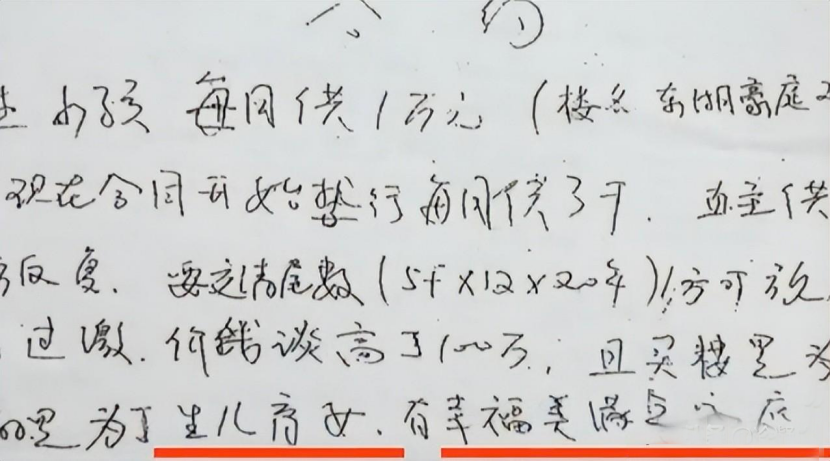 合约
小孩 每周供1万元 (楼名 东湖豪庭
现在合同开始执行每周供3千. 直至供
反复. 要交清尾数(5千×12×20年)方可放
过激. 价钱谈高了100万, 且买楼是为
的是为了生儿育女. 有幸福美满